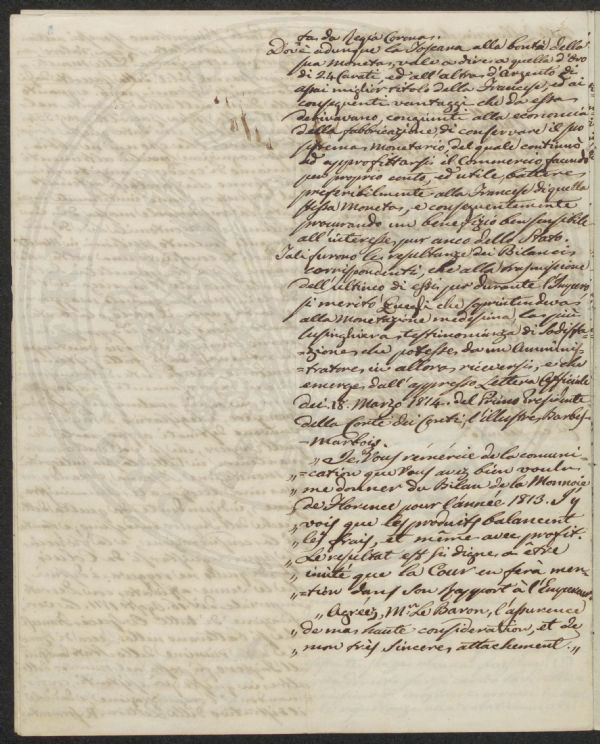 ta da Regia Corona.
Dovè adunque la Toscana alla bontà della
sua Moneta, vale a dire a quella d'Oro
di 24 Carati, ed all'altra d'Argento di
assai miglior titolo della Francese, ed ai
conseguenti vantaggi che da essa
derivavano, congiunti alla economia
della fabbricazione, di conservare il suo
sistema Monetario, del quale continuò
ad approfittarsi il Commercio facendo
per proprio conto, ed utile battere
preferibilmente alla Francese di quella
stessa Moneta, e conseguentemente
procurando un benefizio ben sensibile
all'interesse pur anco dello Stato.
Tali furono le resultanze dei Bilanci
corrispondenti, che alla trasmissione
dell'ultimo di essi, pur durante l'Impero
si meritò Quegli che soprintendeva
alla Monetazione medesima, la più
lusinghiera testimonianza di Sodisfa-
=zione che potesse da un Amminis-
=tratore in allora riceversi, e che
emerge dall'appresso Lettera Officiale
dei 18. Marzo 1814. del Primo Presidente
della Corte dei Conti, l'illustre Barbes-
=Marbois.
„ Je Vous rémércie de la comuni-
„ =cation que Vous avez bien voulu
„ me donner du Bilan de la Monnoie
„ de Florence pour l'année 1813. J'y
„ vois que les produits balancent
„ les frais, et même avec profit.
„ Le resultat est si digne à être
„ imité que la Cour en ferà men-
„ =tion dans son rapport à l'Empereur.
„ Agréez, M.r Le Baron, l'assurence
„ de ma haute consideration, et de
„ mon très sincere attachement. „